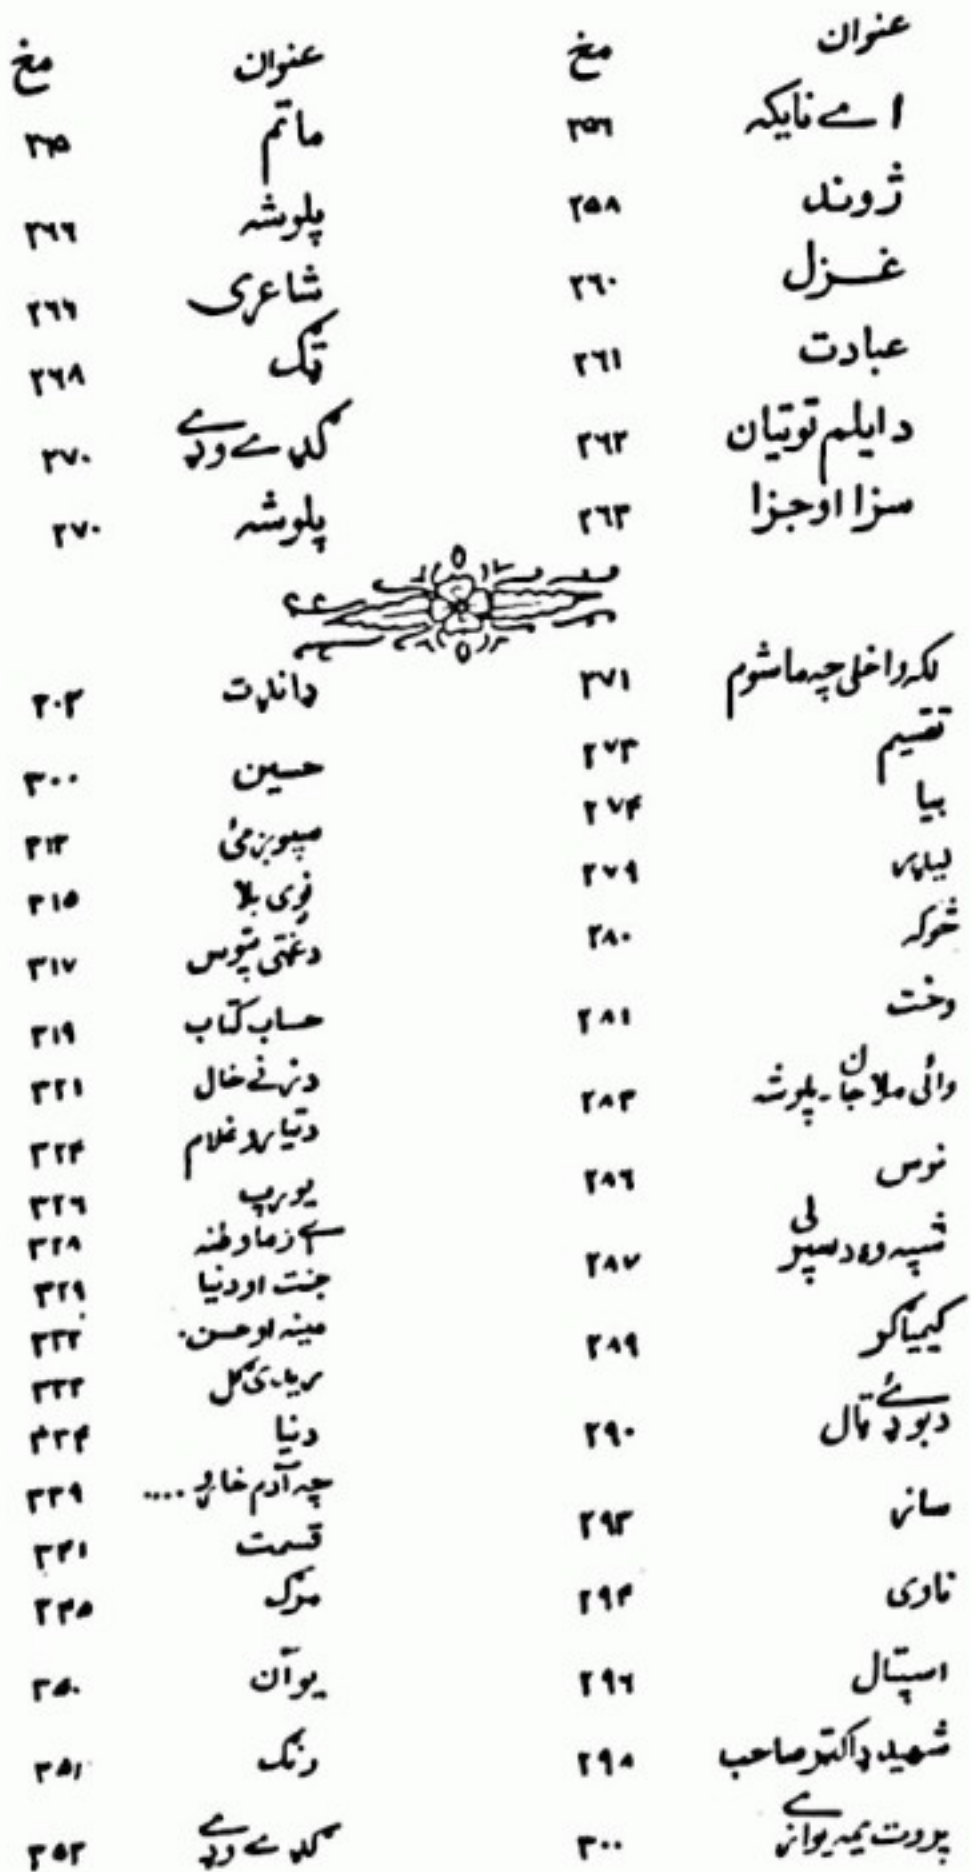 عنوان مخ
اے نایکہ ۲۵۶
ژوند ۲۵۸
غزل ۲۶۰
عبادت ۲۶۱
د ایلم توتیان ۲۶۲
سزا او جزا ۲۶۳
عنوان مخ
ماتم ۲۶۵
پلوشہ ۲۶۶
شاعری ۲۶۶
ټک ۲۶۸
ګډے وډے ۲۷۰
پلوشہ ۲۷۰
لکہ واخلی چہ ماشوم ۲۷۱
تقسیم ۲۷۳
بیا ۲۷۴
لیډر ۲۷۹
څوکہ ۲۸۰
وخت ۲۸۱
وائی ملا جان ـ پلوشہ ۲۸۳
نوس ۲۸۶
شپہ وہ د سپوږلی ۲۸۷
کیمیاګر ۲۸۹
د بوډۍ ټال ۲۹۰
ساز ۲۹۳
ناوی ۲۹۴
اسپتال ۲۹۶
شهید ډاکټر صاحب ۲۹۸
پروت یمہ یوازے ۳۰۰
ډانډت ۳۰۳
حسین ۳۰۰
سپوږمئ ۳۱۳
نوی بلا ۳۱۵
د غټی تپوس ۳۱۷
حساب کتاب ۳۱۹
د زنے خال ۳۲۱
د تیارو غلام ۳۲۴
یورپ ۳۲۶
اے زما وطنہ ۳۲۸
جنت او دنیا ۳۲۹
مینہ او حسن ۳۳۲
ریدی ګل ۳۳۳
دنیا ۳۳۴
چہ آدم خاورو .... ۳۳۹
قسمت ۳۴۱
مرګ ۳۴۵
یو آن ۳۵۰
رنګ ۳۵۱
ګډے وډے ۳۵۳